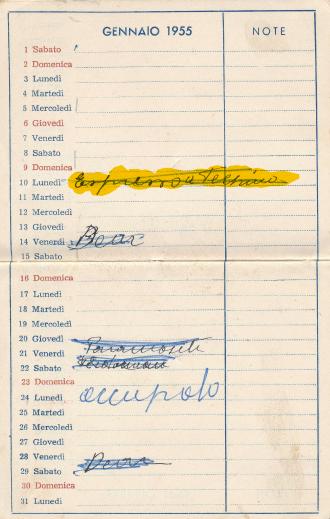 GENNAIO 1955 NOTE
1 Sabato
2 Domenica
3 Lunedì
4 Martedì
5 Mercoledì
6 Giovedì
7 Venerdì
8 Sabato
9 Domenica
10 Lunedì
11 Martedì
12 Mercoledì
13 Giovedì
14 Venerdì
15 Sabato
16 Domenica
17 Lunedì
18 Martedì
19 Mercoledì
20 Giovedì
21 Venerdì
22 Sabato
23 Domenica
24 Lunedì occupato
25 Martedì
26 Mercoledì
27 Giovedì
28 Venerdì
29 Sabato
30 Domenica
31 Lunedì